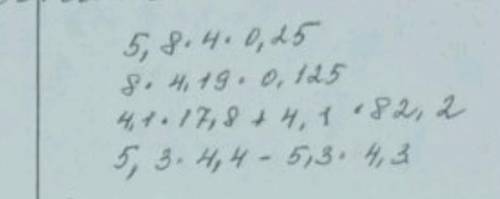 5,8·4·0,25
8·4,19·0,125
4,1·17,8+4,1·82,2
5,3·4,4-5,3·4,3